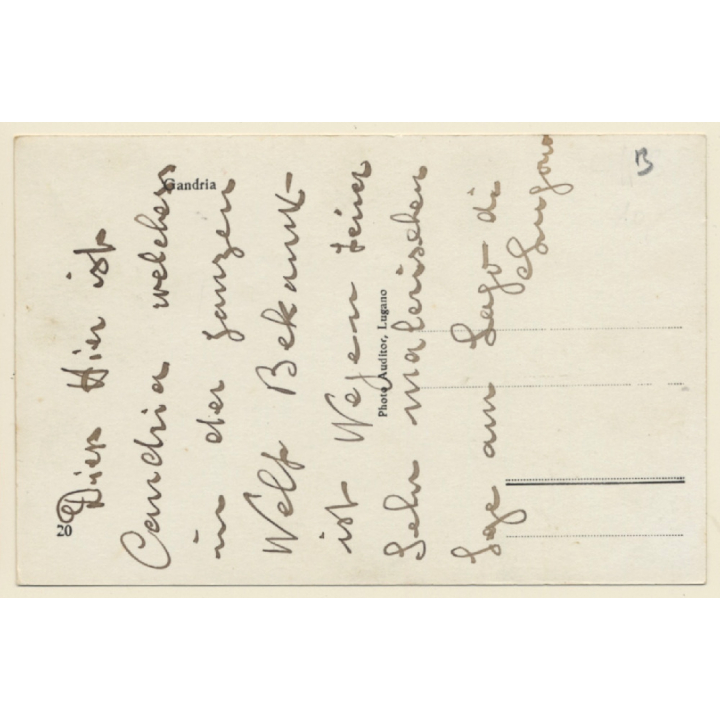 Gandria
20
Photo Auditor, Lugano
Dies Hier ist
Candria welches
in der ganzen
Welt Bekannt-
ist Wegen seiner
Sehr malerischen
Lage am Lago di
Lugano
B